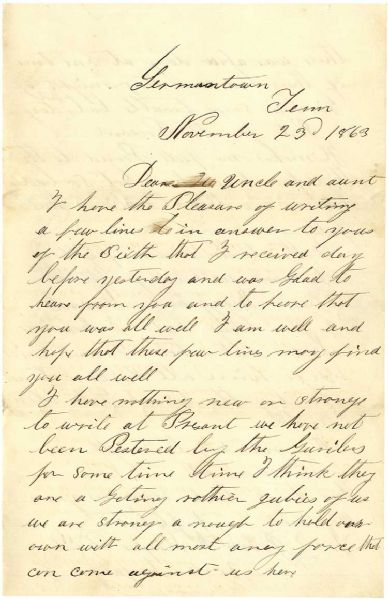 Germantown
Tenn
November 23d 1863
Dear Uncle and aunt
I have the Pleasure of writing
a few lines in answer to yours
of the Sixth that I received day
before yesterday and was Glad to
heare from you and to hare that
you was all well I am well and
hope that these few lines may find
you all well
I have nothing new or strange
to write at Presant we have not
been Pestered by the Gurilas
for some time time I think they
are a Geting rather jubies of us
we are strong a nough to hold our
own with all most anay force that
can come against us here